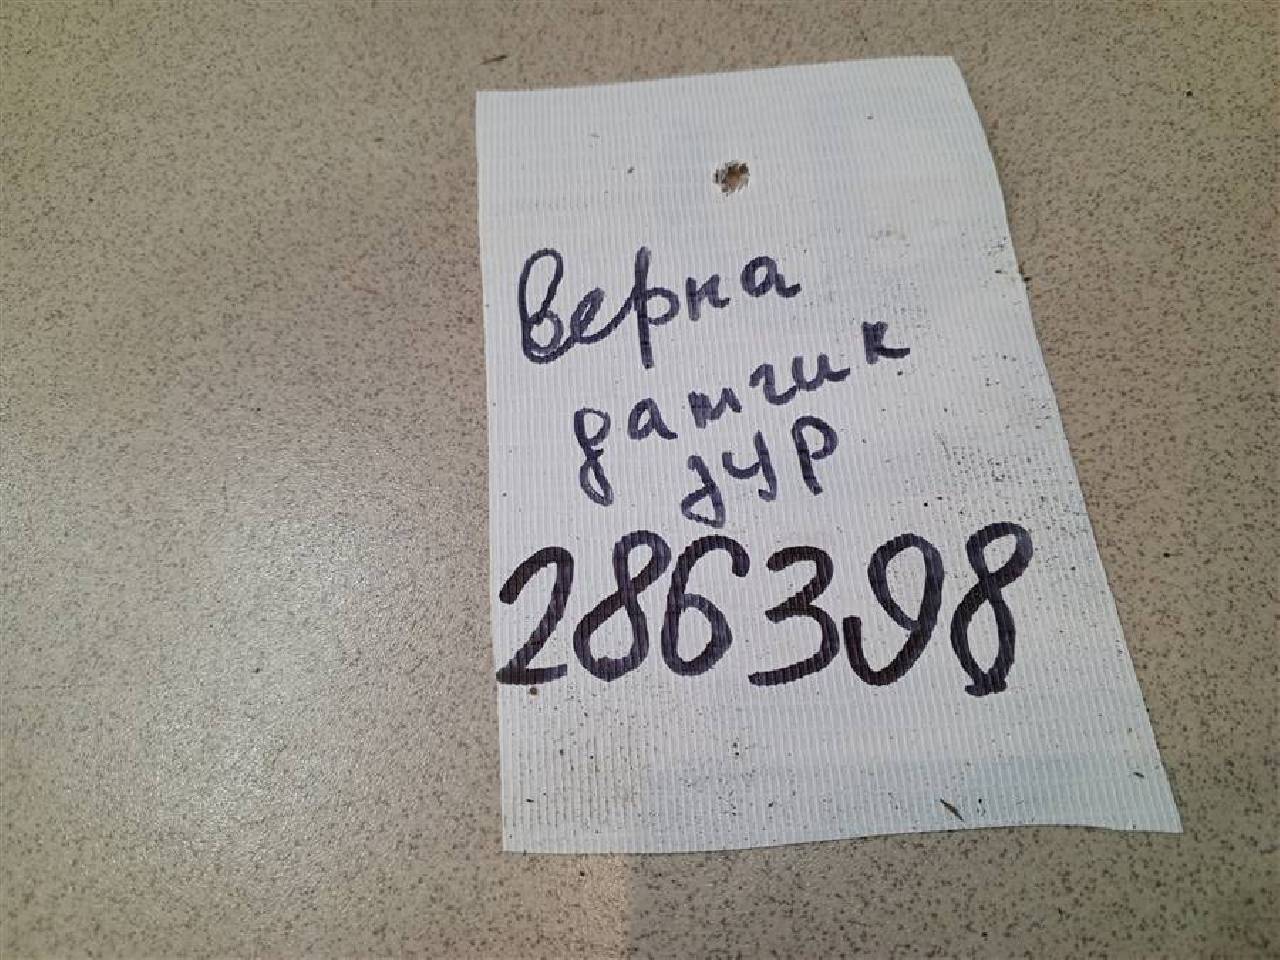 Верна
датчик
ДУР
286398